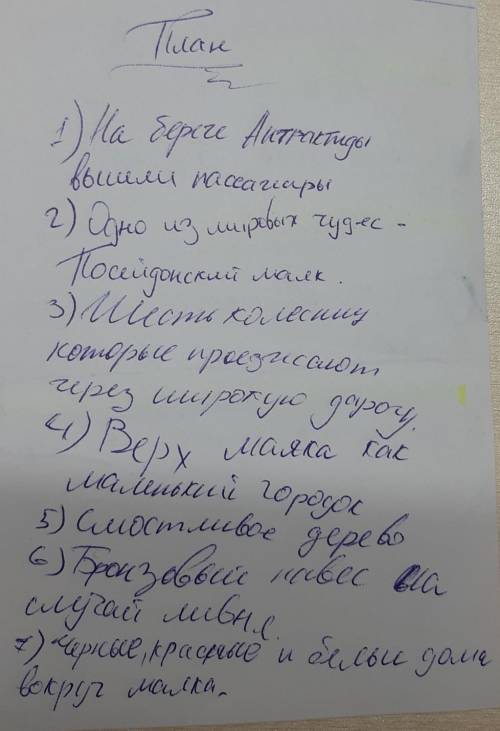 План
1) На береге Антрактиды
вышли пассажиры
2) Одно из мировых чудес -
Посейдонский маяк.
3) Шесть колесниц
которые проезжают
через широкую дорогу.
4) Верх маяка как
маленький городок
5) Смостливое дерево
6) Бронзовый навес на
случай ливня.
7) Черные, красные и белые дома
вокруг маяка.